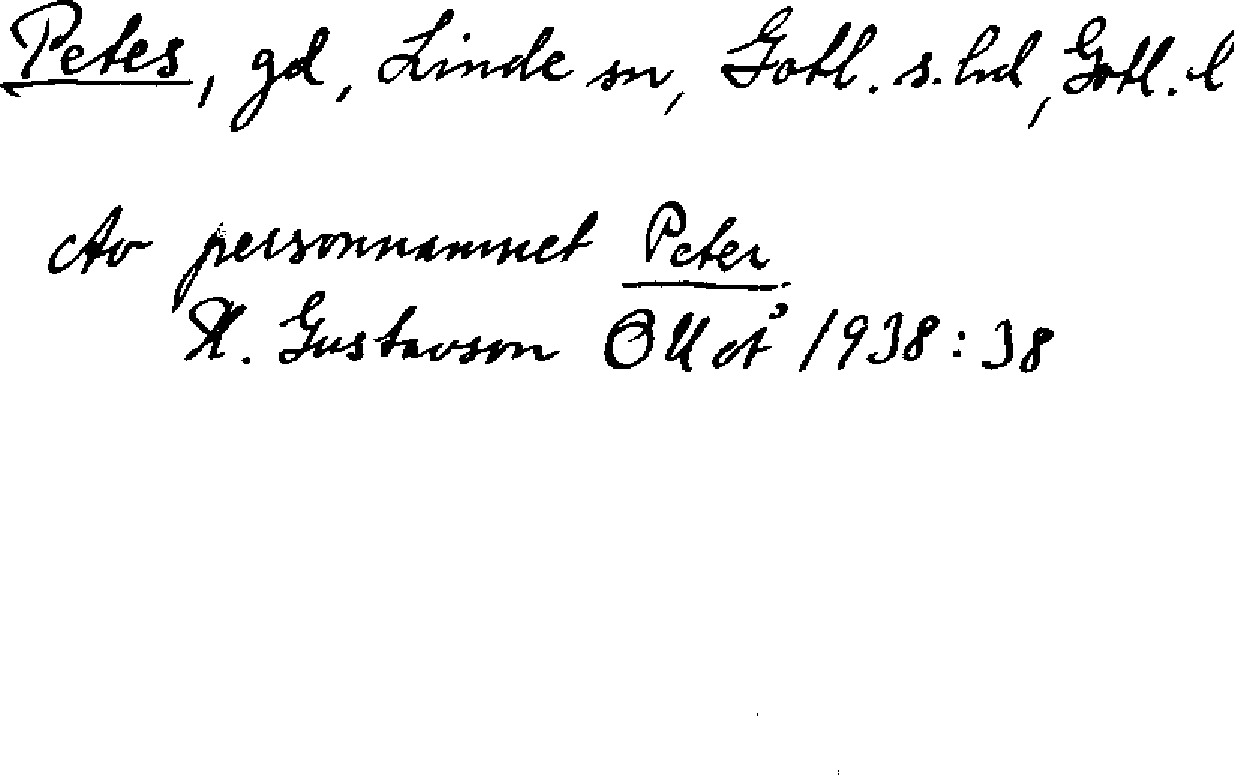 Petes, gd, Linde sn, Gotl. s. hd, Gotl. l
Av personnamnet Peter.
H. Gustavson OUÅ 1938:38